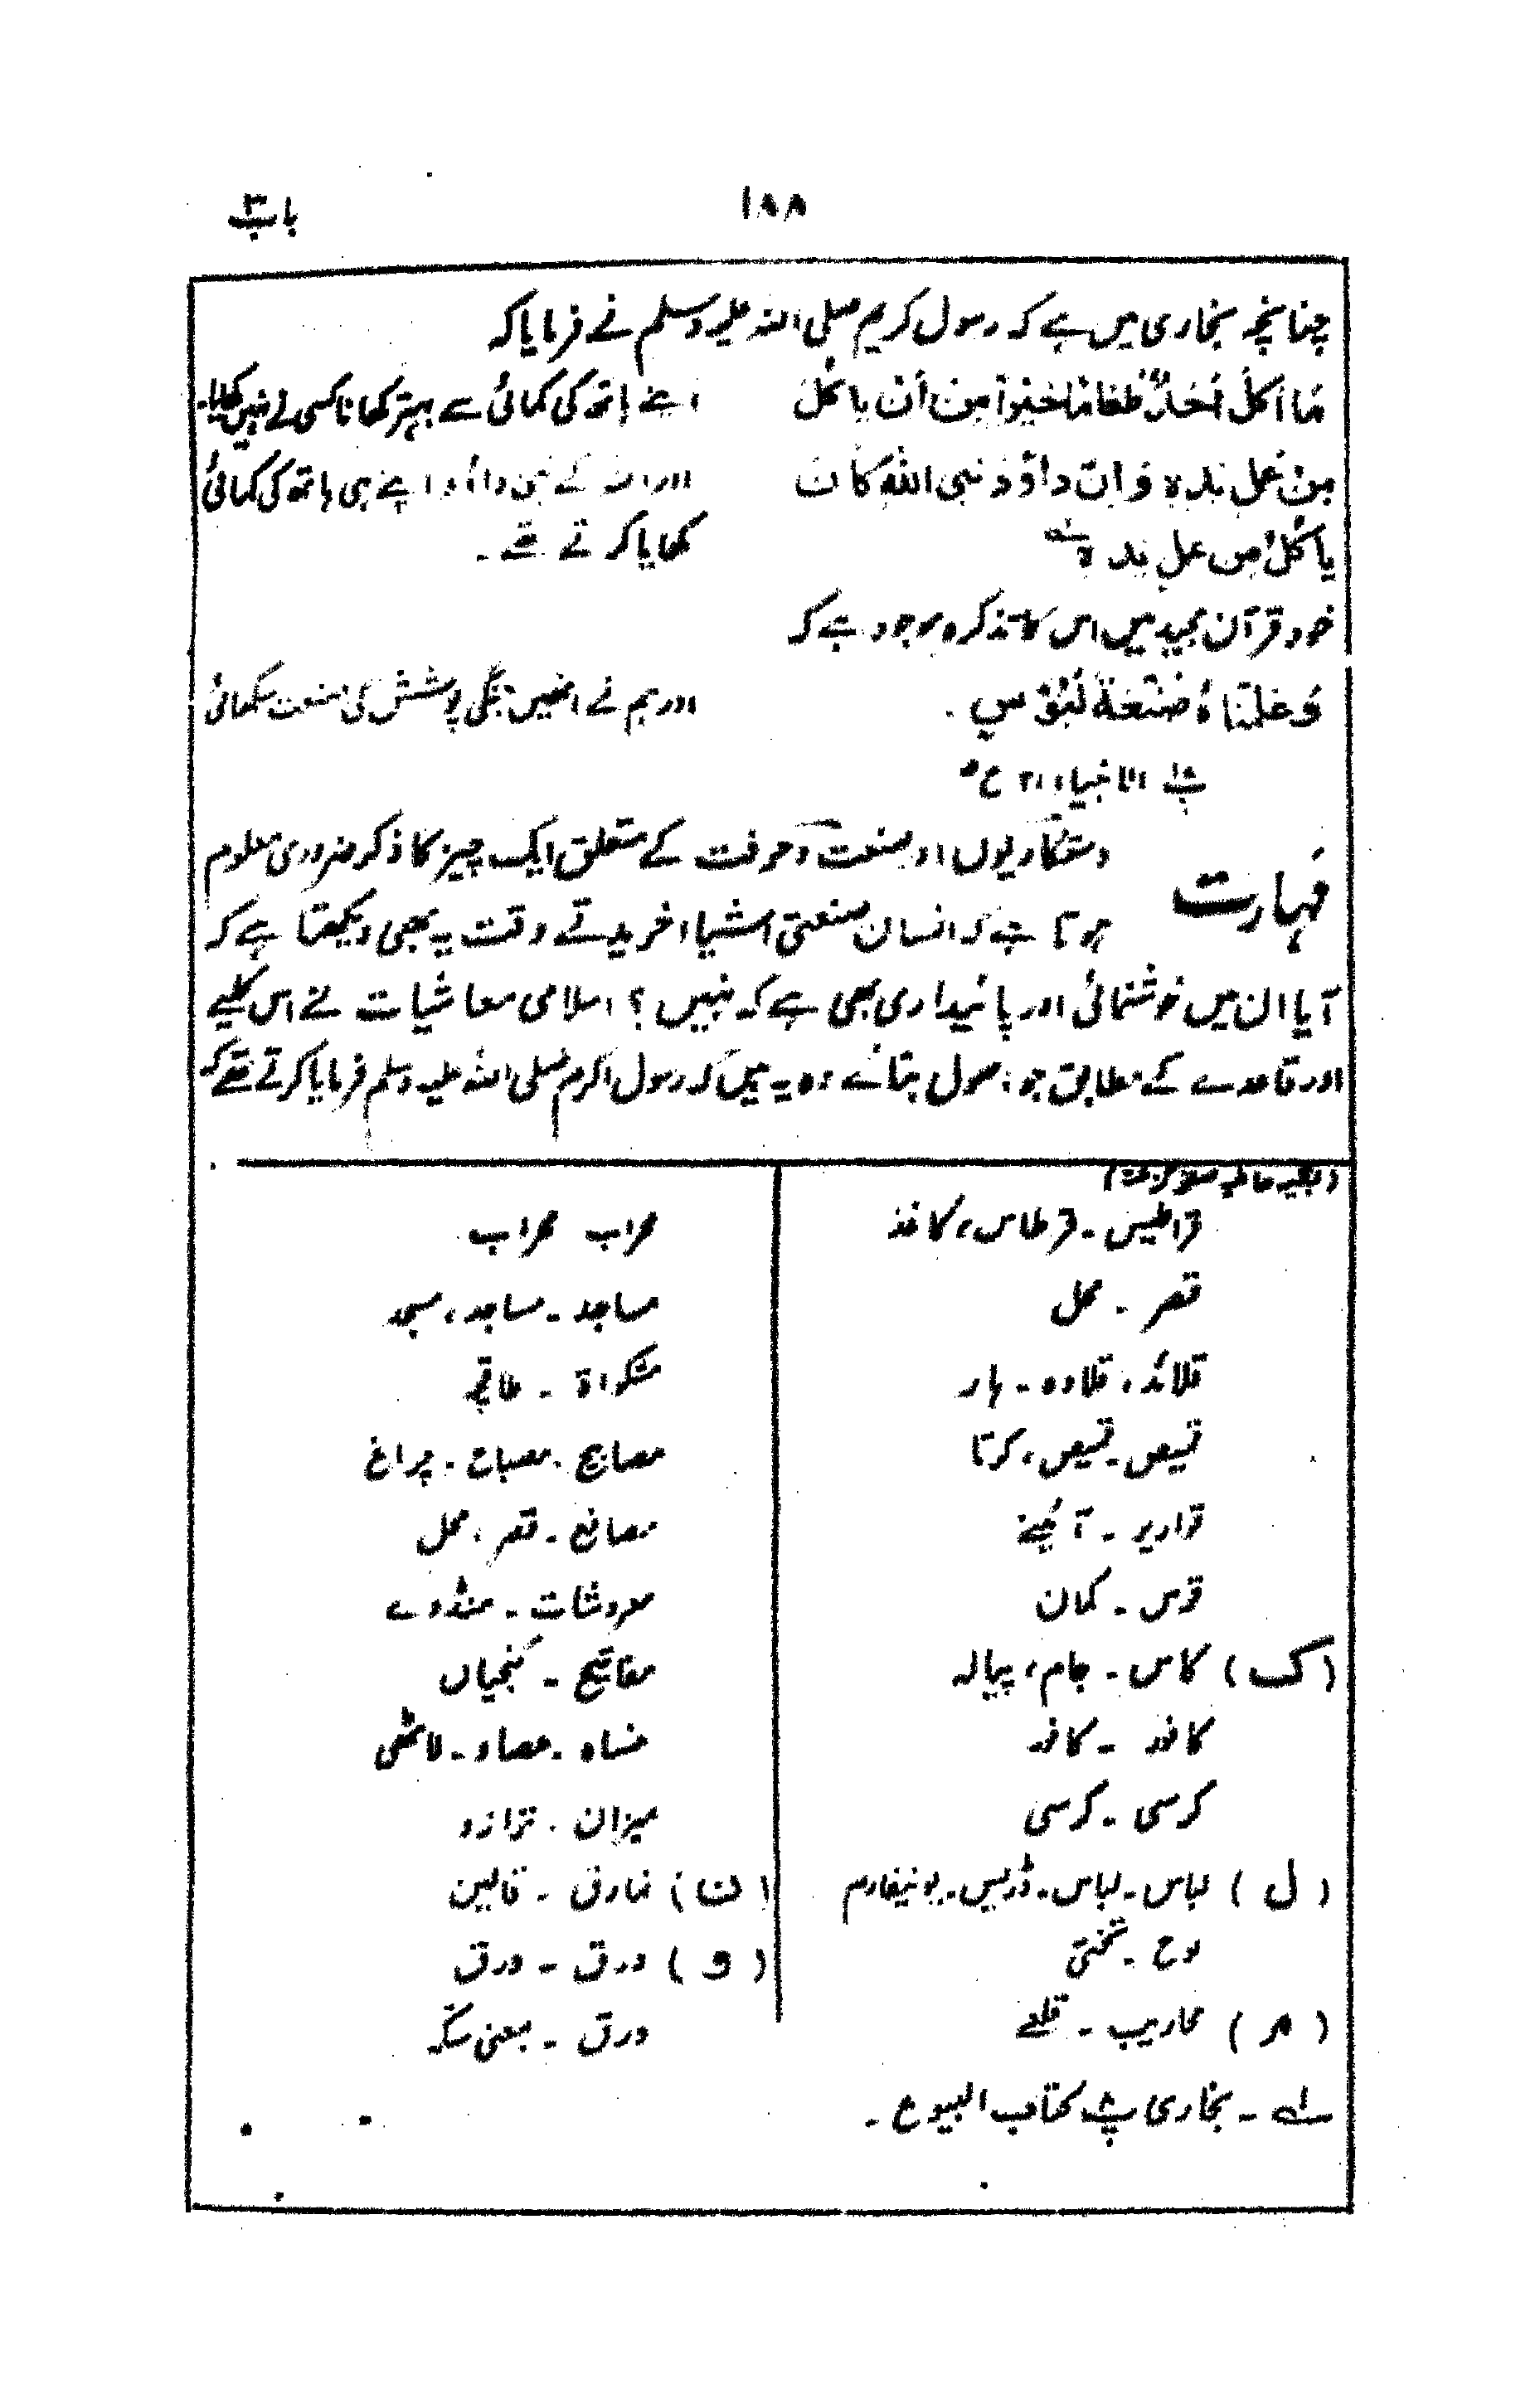 باب ۳
۱۸۸
چنانچہ بخاری میں ہے کہ رسول کریم صلی اللہ علیہ وسلم نے فرمایا کہ
مَا اَکَلَ اَحَدٌ طَعَامًا خَیْرًا مِنْ اَنْ یَاکُلَ
مِنْ عَمَلِ یَدِہٖ وَ اِنَّ دَاوٗدَ نَبِیَّ اللہِ کَانَ
یَاْکُلُ مِنْ عَمَلِ یَدِہٖ ؎۱
اپنے ہاتھ کی کمائی سے بہتر کھانا کسی نے نہیں کھایا۔
اور اللہ کے نبی داؤد اپنے ہی ہاتھ کی کمائی
کھایا کرتے تھے۔
خود قرآن مجید میں اس کا تذکرہ موجود ہے کہ
وَعَلَّمْنَاہُ صَنْعَۃَ لَبُوْسٍ۔
پ ۱۷ الانبیاء ۲۱ ع ۵
اور ہم نے انھیں جنگی پوشش کی صنعت سکھائی
مہارت
دستکاریوں اور صنعت و حرفت کے متعلق ایک چیز کا ذکر ضروری معلوم
ہوتا ہے کہ انسان صنعتی اشیاء خریدتے وقت یہ بھی دیکھتا ہے کہ
آیا ان میں خوشنمائی اور پائیداری بھی ہے کہ نہیں؟ اسلامی معاشیات نے اس کلیے
اور قاعدے کے مطابق جو اصول بتائے وہ یہ ہیں کہ رسول اکرم صلی اللہ علیہ وسلم فرمایا کرتے تھے کہ
(بقیہ حاشیہ صفحہ گزشتہ)
قراطیس۔ قرطاس، کاغذ
قصر ۔ محل
قلائد، قلادہ ۔ ہار
قمیص۔ قمیص، کرتا
قواریر ۔ آئینے
قوس ۔ کمان
(ک) کاس ۔ جام، پیالہ
کافور ۔ کافور
کرسی ۔ کرسی
(ل) لباس۔ لباس۔ ڈریس۔ یونیفارم
لوح ۔ تختی
(م) محاریب ۔ قلعے
محراب محراب
مساجد ۔ مساجد، مسجد
مشکواۃ ۔ طاقچہ
مصابیح ۔ مصباح ۔ چراغ
مصانع ۔ قصر، محل
معروشات ۔ منڈوے
مفاتیح ۔ کنجیاں
منساہ ۔ عصاء ۔ لاٹھی
میزان ۔ ترازو
(ن) نمارق ۔ قالین
(و) ورق ۔ ورق
ورق ۔ بمعنی سکّہ
؎۱ ۔ بخاری پ ۸ کتاب البیوع ۔